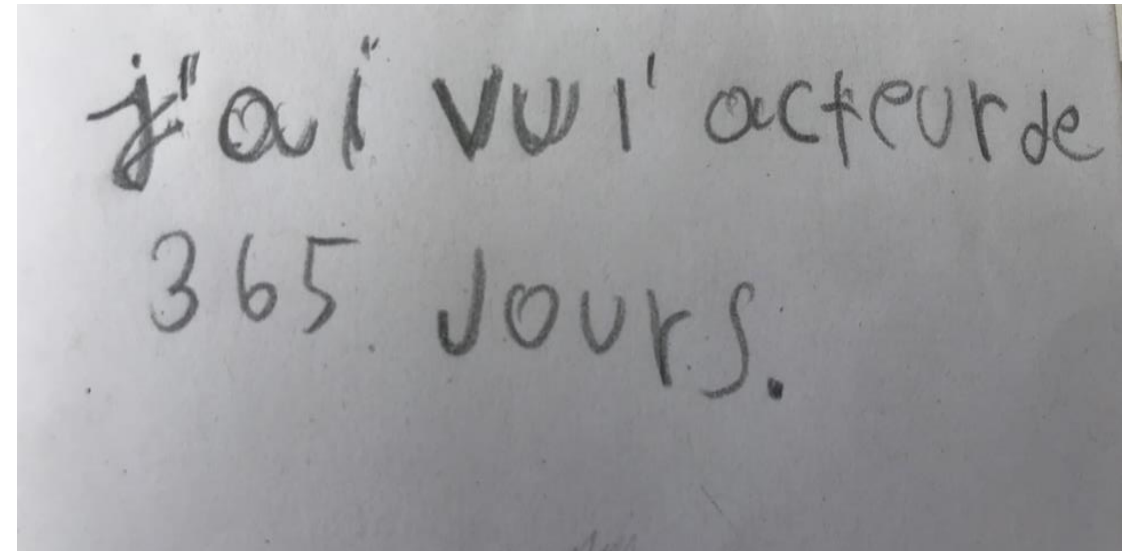 j'ai vu l'acteur de
365 Jours.